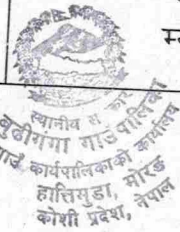 स्थानीय स
बुढीगंगा गाउँपालिका
गाउँ कार्यपालिकाको कार्यालय
हात्तिमुडा, मोरङ
कोशी प्रदेश, नेपाल